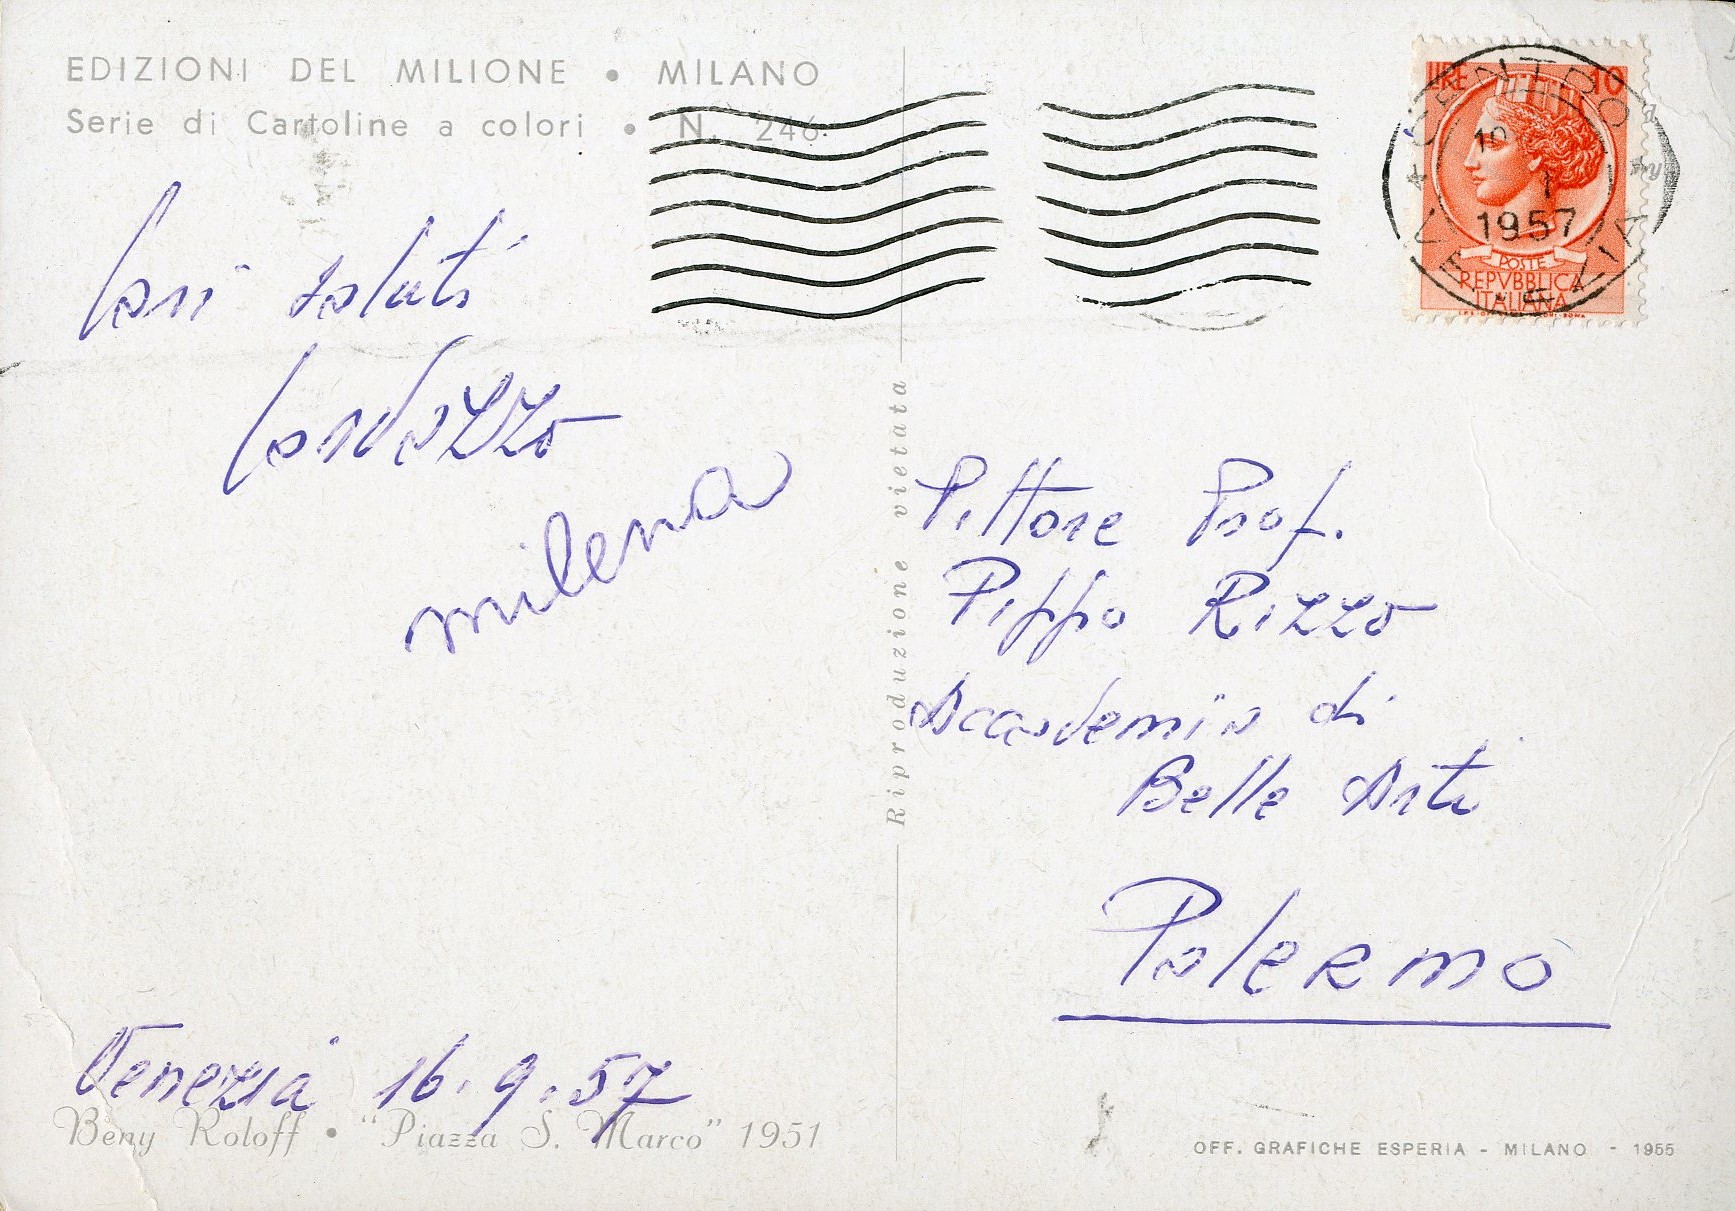 EDIZIONI DEL MILIONE • MILANO
Serie di Cartoline a colori • N. 246
Cari saluti
Cardazzo
milena
Venezia 16.9.57
Beny Roloff • "Piazza S. Marco" 1951
Riproduzione vietata
LIRE 10
POSTE
REPVBBLICA
ITALIANA
CENTRO
1957
Pittore Prof.
Pippo Rizzo
Accademia di
Belle Arti
Palermo
OFF. GRAFICHE ESPERIA - MILANO - 1955